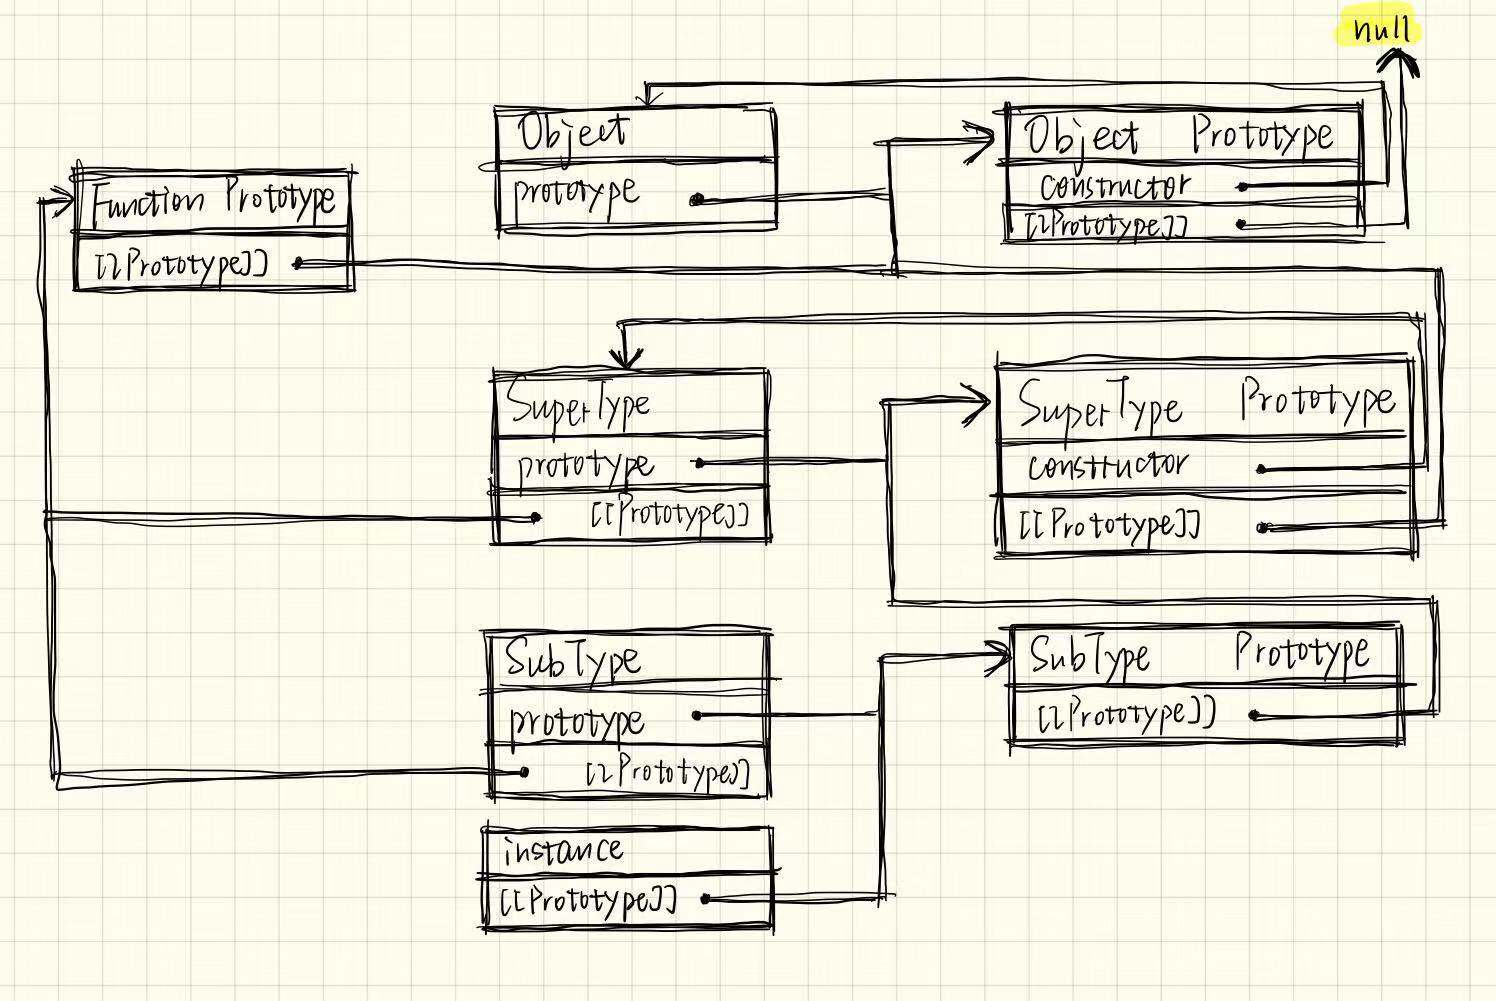 null
Object
prototype
Object Prototype
constructor
[[Prototype]]
Function Prototype
[[Prototype]]
SuperType
prototype
[[Prototype]]
SuperType Prototype
constructor
[[Prototype]]
SubType
prototype
[[Prototype]]
SubType Prototype
[[Prototype]]
instance
[[Prototype]]